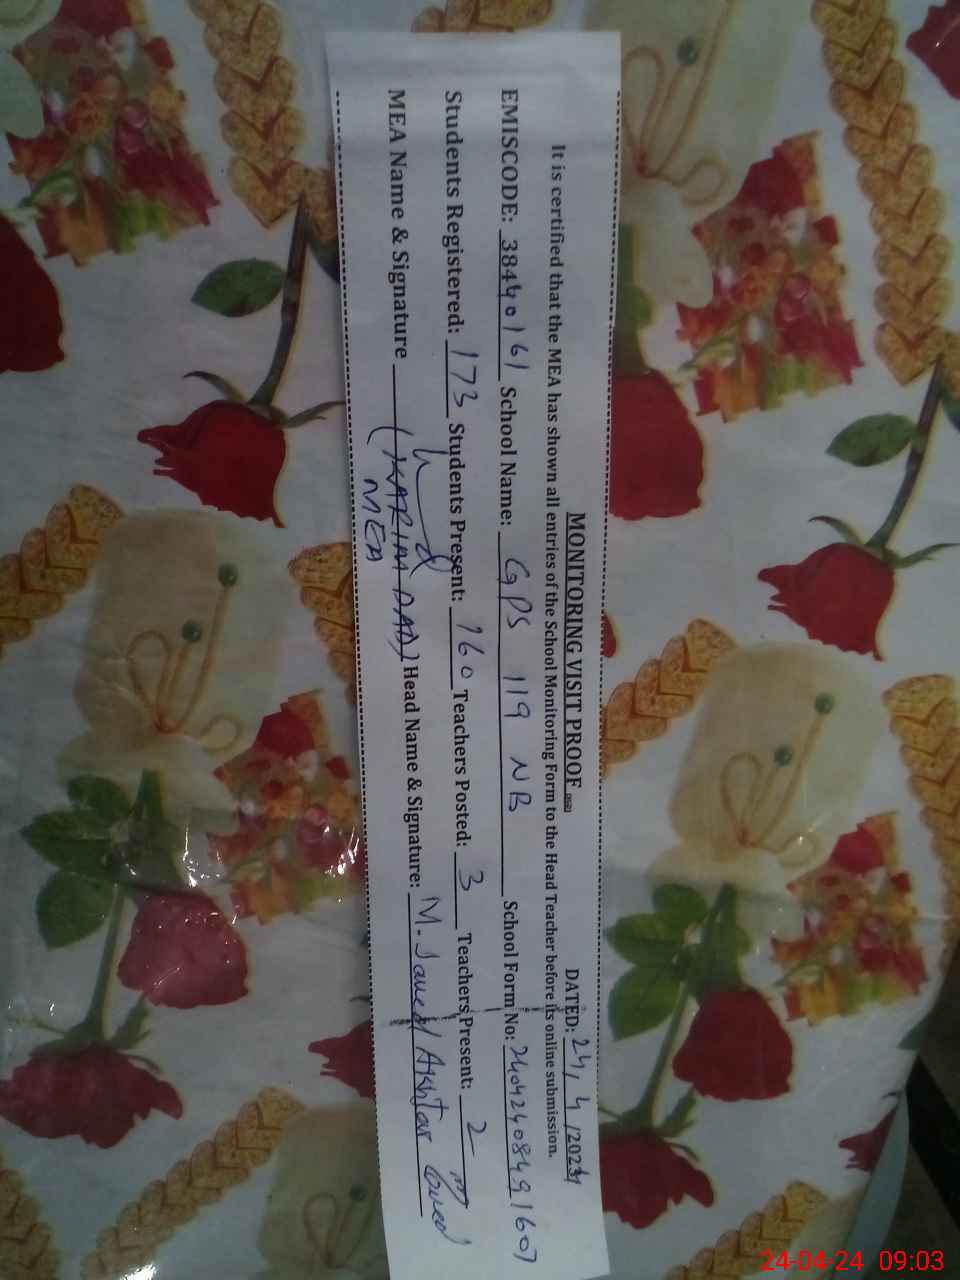 MONITORING VISIT PROOF DATED: 24/4/2024
It is certified that the MEA has shown all entries of the School Monitoring Form to the Head Teacher before its online submission.
EMISCODE: 38440161 School Name: GPS 119 NB School Form No: 24042408491607
Students Registered: 173 Students Present: 160 Teachers Posted: 3 Teachers Present: 2
MEA Name & Signature (KARIM DAD) Head Name & Signature: M. Javed Akhtar
MEA
24-04-24 09:03